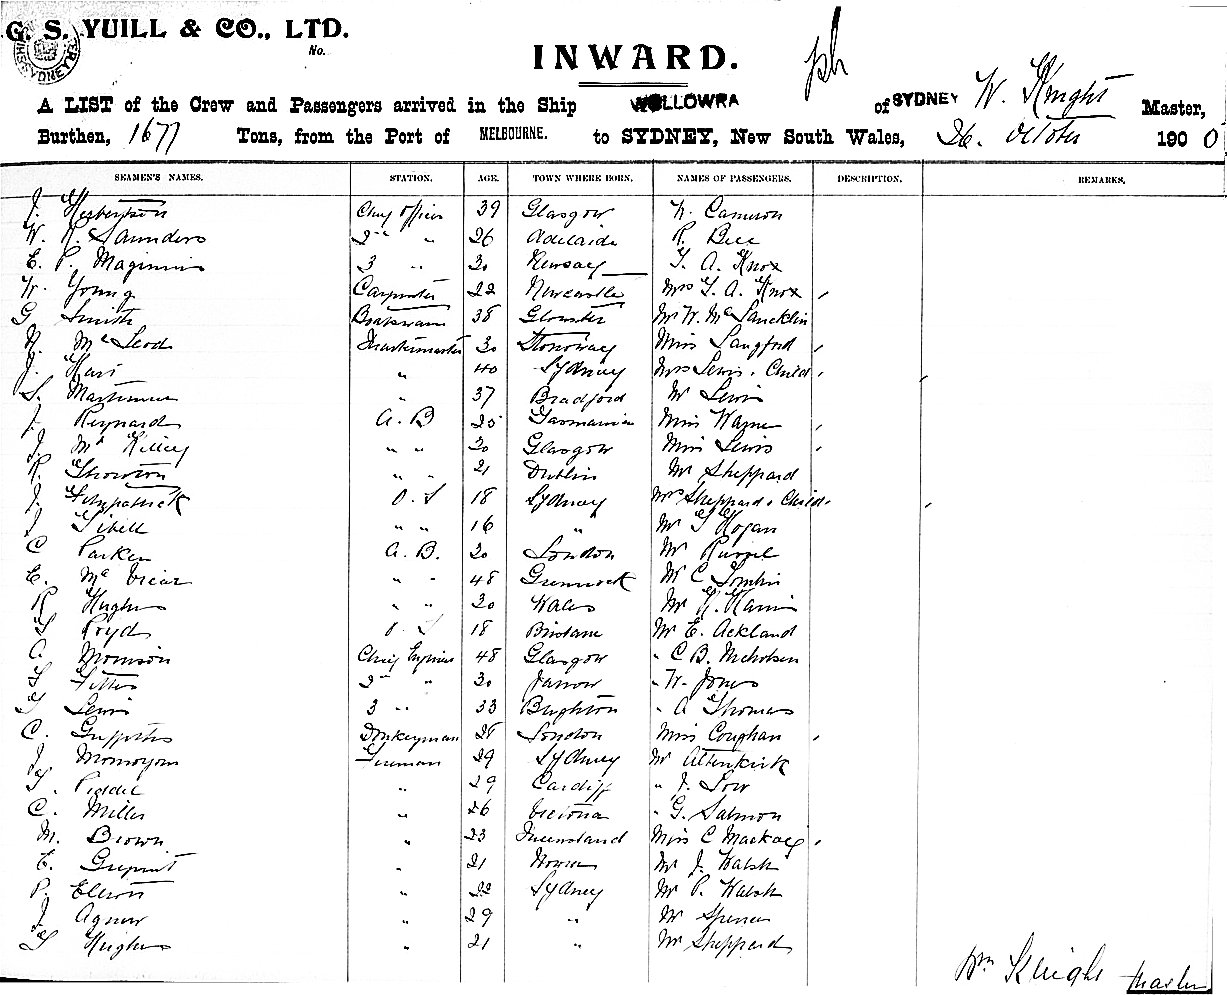 G. S. YUILL & CO., LTD.
No.
INWARD.
A LIST of the Crew and Passengers arrived in the Ship WOLLOWRA of SYDNEY W. Knight Master,
Burthen, 1677 Tons, from the Port of MELBOURNE. to SYDNEY, New South Wales, 26. October 1900
SEAMEN'S NAMES. STATION. AGE. TOWN WHERE BORN, NAMES OF PASSENGERS. DESCRIPTION. REMARKS.
J. Chief Officer 39 Glasgow W. Cameron
W. R. Saunders 2nd " 26 Adelaide R. Bell
E. P. Maginnis 3 " 30 T. A. Knox
W. Young Carpenter 22 Newcastle Mrs T. A. Knox
G Smith Boatswain 38 Gloucester Mr W. Mc
N. McLeod Quartermaster 30 Stornoway Miss Langford
J. " 40 Sydney Mrs Lewis & Child
S. Mortimer " 37 Bradford Mr Lewis
J. Reynards A. B 25 Tasmania Miss Warne
J. Mc " " 30 Glasgow Miss Lewis
R. " " 21 Dublin Mr Sheppard
J. Fitzpatrick O. S 18 Sydney Mrs Sheppard & Child
J " " 16 " Mr T Hogan
C Parker A. B. 20 London Mr
E. Mc Vicar " " 48 Greenock Mr C Tomlin
R Hughes " " 30 Wales Mr
T O. S 18 Brisbane Mr E. Ackland
A. Morrison Chief Engineer 48 Glasgow " C B. Nicholson
T 2nd " 30 Jarrow " W. Jones
T Lewis 3 " 33 Brighton " A Thomas
C. Griffiths Donkeyman 28 London Miss Coughan
J. Fireman 29 Sydney Mr Attenkirk
T. " 29 Cardiff " J. Low
C. Miller " 26 Victoria " G. Salmon
M. Brown " 23 Queensland Miss C Mackay
E. " 21 Nowra Mr J. Walsh
P. Elliott " 22 Sydney Mr P. Walsh
J. Agnew " 29 " Mr Spencer
T Hughes " 21 " Mr Sheppard
Wm Knight Master